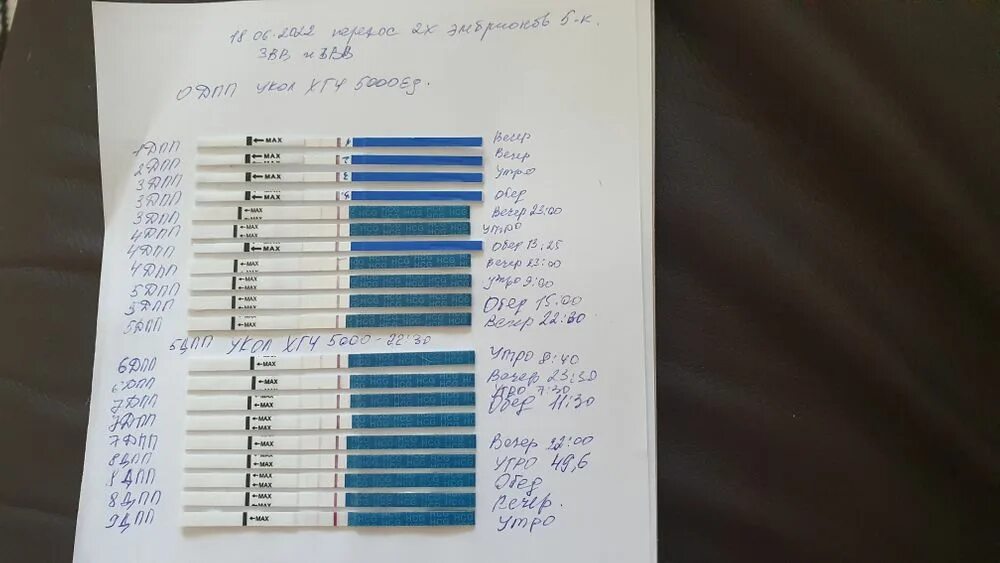 18.06.2022 перенос 2х эмбрионов 5-к.
3ВВ и
0ДПП УКОЛ ХГЧ 5000Ед.
1ДПП ←MAX 1 Вечер
2ДПП ←MAX 2 Вечер
3ДПП ←MAX 3 Утро
3ДПП ←MAX Обед
3ДПП ←MAX HCG HCG HCG HCG Вечер 23:00
4ДПП ←MAX HCG HCG HCG HCG Утро
4ДПП ←MAX Обед 13:25
4ДПП ←MAX HCG HCG HCG HCG Вечер 23:00
5ДПП ←MAX HCG HCG HCG HCG Утро 9:00
5ДПП ←MAX HCG HCG HCG HCG Обед 15:00
5ДПП ←MAX HCG HCG HCG HCG Вечер 22:30
5ДПП УКОЛ ХГЧ 5000 - 22:30
6ДПП ←MAX HCG HCG HCG HCG Утро 8:40
6ДПП ←MAX HCG HCG HCG HCG Вечер 23:30
7ДПП ←MAX HCG HCG HCG HCG Утро 7:30
7ДПП ←MAX HCG HCG HCG HCG Обед 11:30
7ДПП ←MAX HCG HCG HCG HCG Вечер 22:00
8ДПП ←MAX HCG HCG HCG HCG УТРО 49,6
8ДПП ←MAX HCG HCG HCG HCG Обед
8ДПП ←MAX HCG HCG HCG HCG Вечер.
9ДПП ←MAX HCG HCG HCG HCG Утро